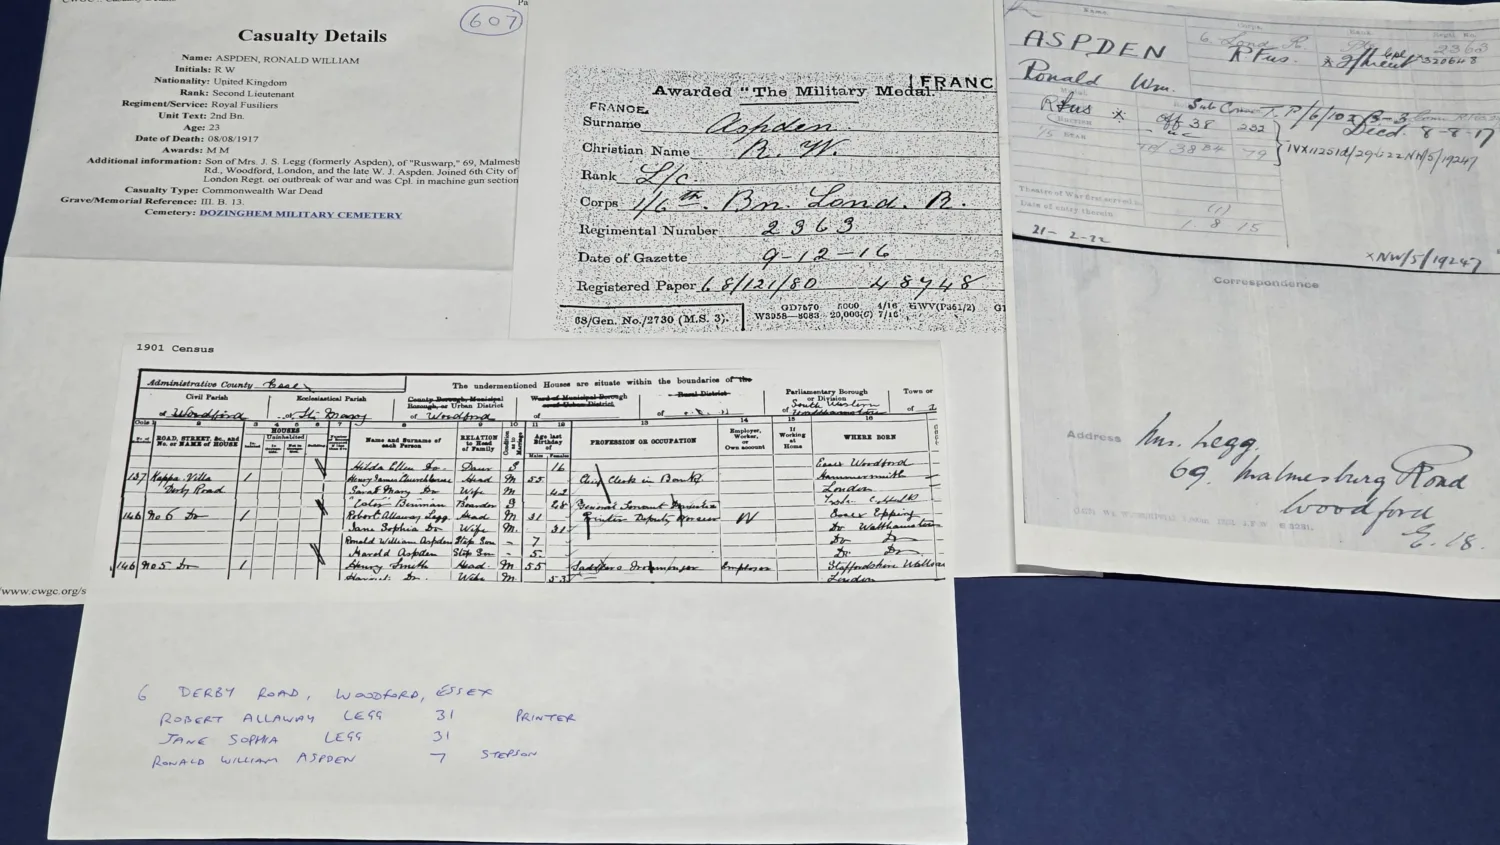 607
Casualty Details
Name: ASPDEN, RONALD WILLIAM
Initials: R W
Nationality: United Kingdom
Rank: Second Lieutenant
Regiment/Service: Royal Fusiliers
Unit Text: 2nd Bn.
Age: 23
Date of Death: 08/08/1917
Awards: M M
Additional information: Son of Mrs. J. S. Legg (formerly Aspden), of "Ruswarp," 69, Malmesb
Rd., Woodford, London, and the late W. J. Aspden. Joined 6th City of
London Regt. on outbreak of war and was Cpl. in machine gun section
Casualty Type: Commonwealth War Dead
Grave/Memorial Reference: III. B. 13.
Cemetery: DOZINGHEM MILITARY CEMETERY
www.cwgc.org/s
FRANC
Awarded "The Military Medal."
FRANCE.
Surname Aspden.
Christian Name R. W.
Rank L/c
Corps 1/6th. Bn. Lond. R.
Regimental Number 2363
Date of Gazette 9-12-16
Registered Paper 68/121/80 48748
68/Gen. No./2730 (M.S. 3).
GD7570 5000 4/16 HWV(P351/2)
W3958—8083 20,000(6) 7/16
Name. Corps. Rank.
ASPDEN 6. Lond. R. 2363
R Fus. 320648
Ronald Wm.
R Fus * Off 38 232 Died. 8-8-17
IVX/1251d/29622 NW/5/19247
Theatre of War first served in (1)
Date of entry therein 1. 8 15
21-2-22
×NW/5/19247
Correspondence
Address Mrs. Legg.
69. Malmesbury Road
Woodford
E. 18.
1901 Census
Administrative County Essex
The undermentioned Houses are situate within the boundaries of the
Civil Parish Ecclesiastical Parish County Borough, Municipal Borough, or Urban District Ward of Municipal Borough or of Urban District Rural District Parliamentary Borough or Division Town or
of Woodford of St. Marys of Woodford of of South Western Walthamstow of
ROAD, STREET, &c., and No. or NAME of HOUSE HOUSES Name and Surname of each Person RELATION to Head of Family Condition as to Marriage Age last Birthday of PROFESSION OR OCCUPATION Employer, Worker, or Own account If Working at Home WHERE BORN
Hilda Ellen Do. Daur S 16 Essex Woodford
137 Kappa Villa 1 Henry James Head M 55 Clerk in Bank Hammersmith
Derby Road Sarah Mary Do Wife M 42 London
Benman S 28 General Servant
146 No 6 Do 1 Robert Allaway Legg Head M 31 Printer W Essex Epping
Jane Sophia Do Wife M. 31 Do Walthamstow
Ronald William Aspden Step Son - 7 Do Do
Harold Aspden Step Son - 5. Do. Do
146 No 5. Do 1 Henry Smith Head. M 55 Ironmonger Employer Staffordshire
Harriet Do. Wife M. 53 London
6 DERBY ROAD, WOODFORD, ESSEX
ROBERT ALLAWAY LEGG 31 PRINTER
JANE SOPHIA LEGG 31
RONALD WILLIAM ASPDEN 7 STEPSON